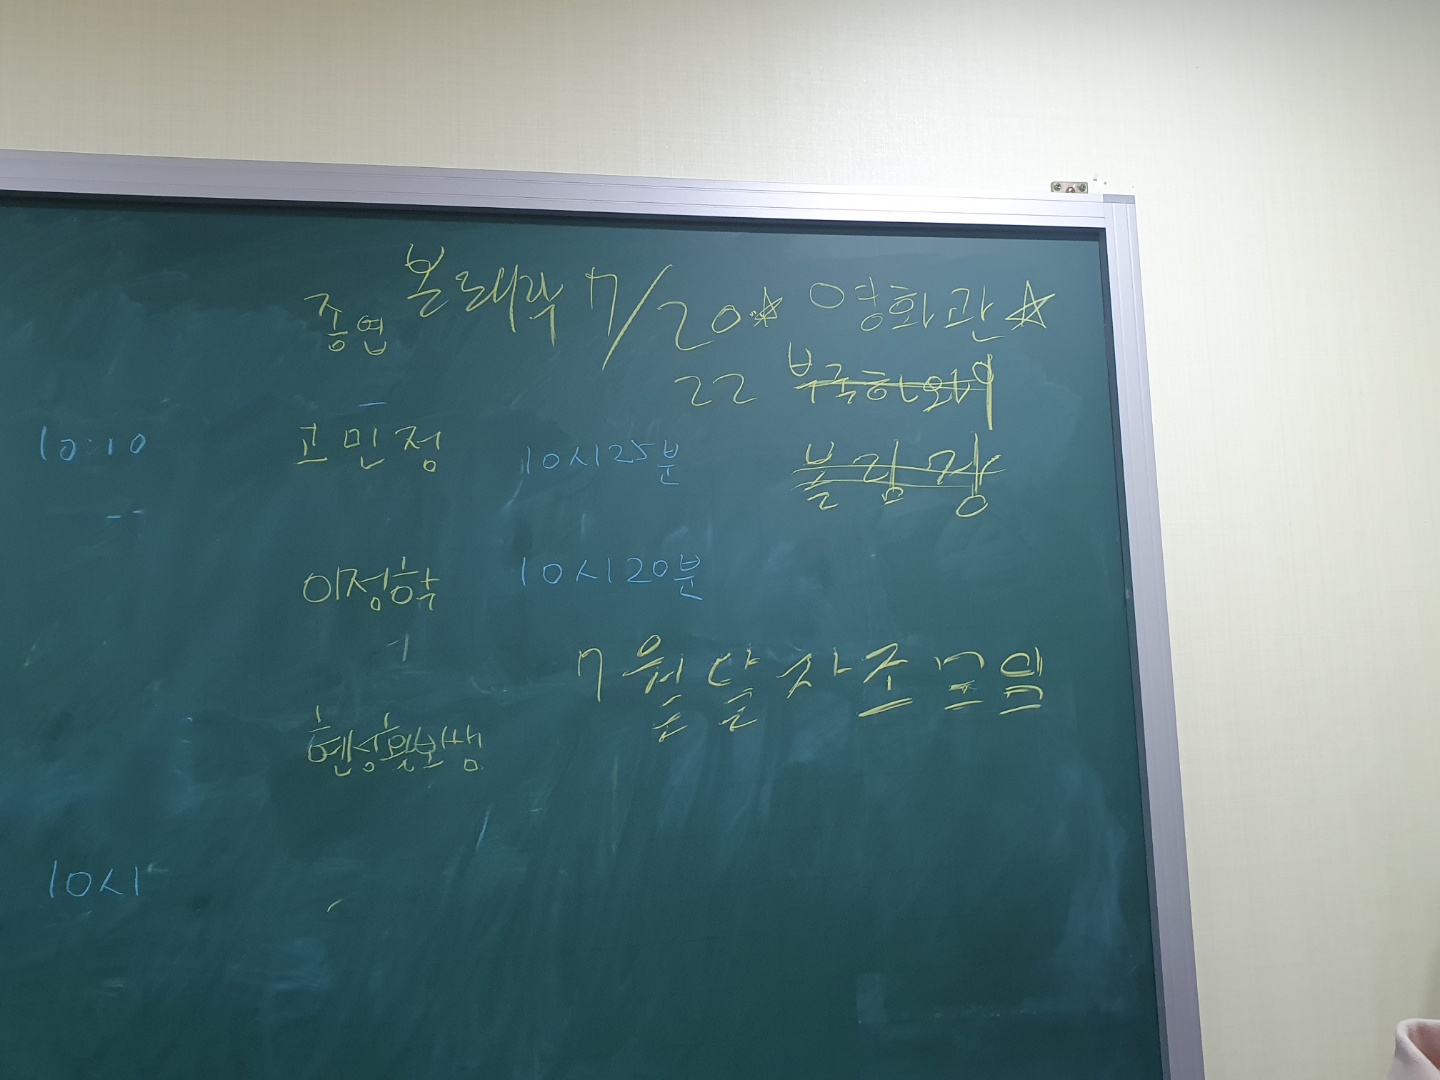 종엽 볼래락 7/20☆ 영화관☆
22 부국하와이
볼링장
10:10 고민정 10시25분
이정학 10시20분
7월달자조모임
현성활보쌤
10시